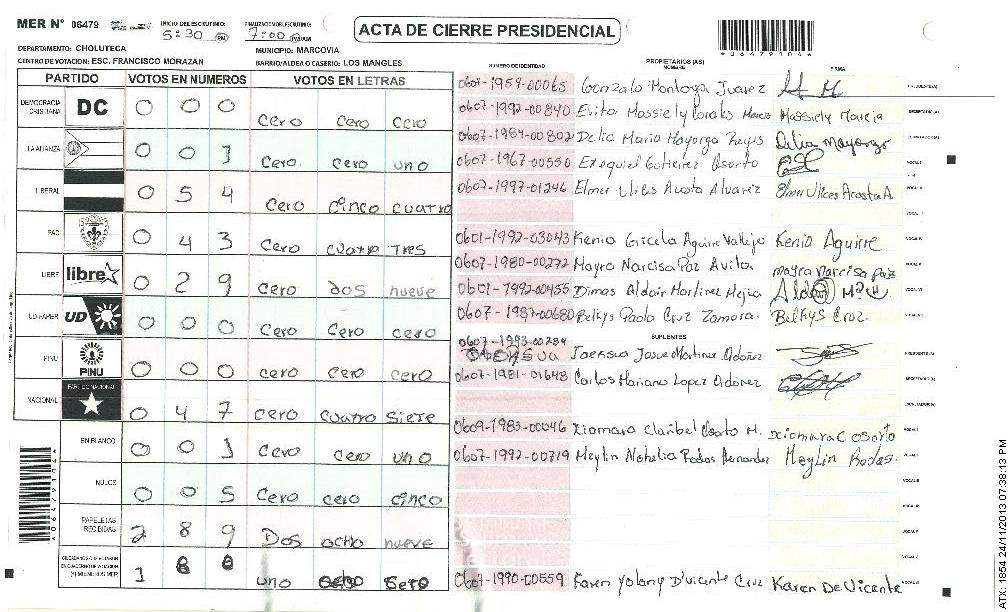 MER N° 06479
INICIO DEL ESCRUTINIO: 5:30 PM
FINALIZACION DEL ESCRUTINIO: 7:00
ACTA DE CIERRE PRESIDENCIAL
DEPARTAMENTO: CHOLUTECA
MUNICIPIO: MARCOVIA
CENTRO DE VOTACION: ESC. FRANCISCO MORAZAN
BARRIO/ALDEA O CASERIO: LOS MANGLES
PARTIDO VOTOS EN NUMEROS VOTOS EN LETRAS
DEMOCRACIA CRISTIANA DC 0 0 0 cero cero cero
LA ALIANZA 0 0 1 cero cero uno
LIBERAL 0 5 4 cero cinco cuatro
PAC 0 4 3 cero cuatro Tres
LIBRE libre 0 2 9 cero dos nueve
UD-FAPER UD 0 0 0 cero cero cero
PINU PINU 0 0 0 cero cero cero
NACIONAL PARTIDO NACIONAL 0 4 7 cero cuatro siete
EN BLANCO 0 0 1 cero cero uno
NULOS 0 0 5 cero cero cinco
PAPELETAS RECIBIDAS 2 8 9 Dos ocho nueve
CIUDADANOS QUE VOTARON EN CUADERNO DE VOTACION (+) MIEMBROS MER 1 8 uno
NUMERO DE IDENTIDAD PROPIETARIOS (AS) NOMBRE FIRMA
0607-1959-00065 Gonzalo Montoya Juarez PRESIDENTE(A)
0607-1992-00840 Massiely Marcia SECRETARIO(A)
0607-1984-00802 Delia Maria Mayorga Reyes Delia Mayorga ESCRUTADOR(A)
0607-1967-00550 Exequiel Gutierez Osorto VOCAL I
0607-1997-01246 Elmer Ulices Acosta Alvarez Elmer Ulices Acosta A. VOCAL II
VOCAL III
0601-1992-03043 Kenia Gricela Aguirre Vallejo Kenia Aguirre VOCAL IV
0607-1980-00272 Mayra Narcisa Paz Avila. mayra Narcisa Paiz VOCAL V
0601-1992-00455 Dimas Aldair Martinez Mejia VOCAL VI
0607-1987-00680 Belkys Paola Cruz Zamora. Belkys Cruz. VOCAL VII
SUPLENTES
0607-1993-00284 Josue Martinez Ordoñez PRESIDENTE(A)
0607-1981-01648 Carlos Mariano Lopez Ordoñez SECRETARIO(A)
ESCRUTADOR(A)
0609-1983-00046 Xiomara Claribel Osorto M. Xiomara C Osorto VOCAL I
0607-1992-00719 Meylin Nohelia Rodas Hernandez Meylin Rodas. VOCAL II
VOCAL III
VOCAL IV
VOCAL V
0607-1990-00559 Karen Yolany D'vicente Cruz Karen De Vicente
A064791046
A064791046
ATX: 1854 24/11/2013 07:38:13 PM